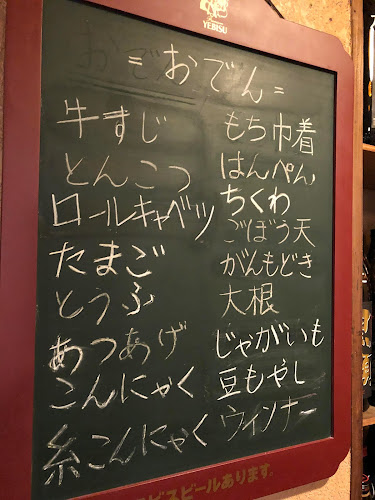 YEBISU
=おでん=
牛すじ
とんこつ
ロールキャベツ
たまご
とうふ
あつあげ
こんにゃく
糸こんにゃく
もち巾着
はんぺん
ちくわ
ごぼう天
がんもどき
大根
じゃがいも
豆もやし
ウィンナー
ビスビールあります。